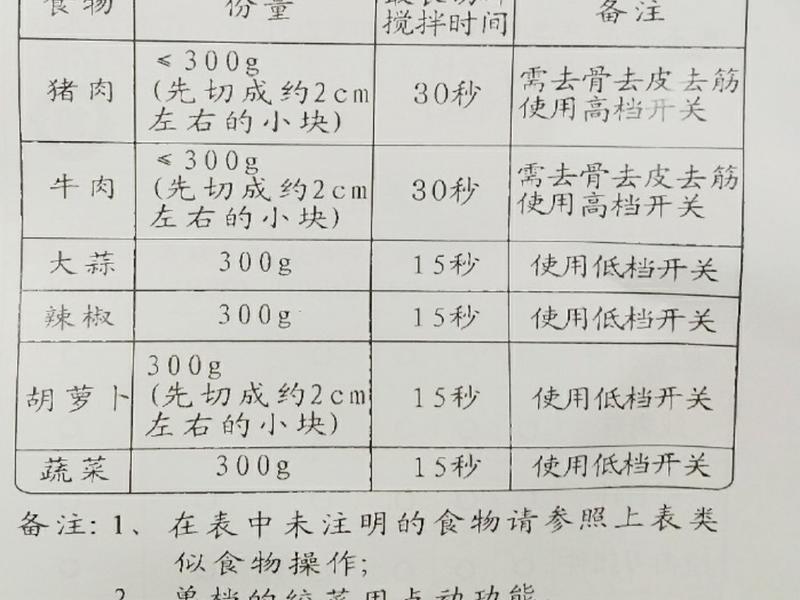 食物 份量 搅拌时间 备注
猪肉 ≤300g
(先切成约2cm
左右的小块) 30秒 需去骨去皮去筋
使用高档开关
牛肉 ≤300g
(先切成约2cm
左右的小块) 30秒 需去骨去皮去筋
使用高档开关
大蒜 300g 15秒 使用低档开关
辣椒 300g 15秒 使用低档开关
胡萝卜 300g
(先切成约2cm
左右的小块) 15秒 使用低档开关
蔬菜 300g 15秒 使用低档开关
备注:1、在表中未注明的食物请参照上表类
似食物操作;
2、单档的绞菜用点动功能。